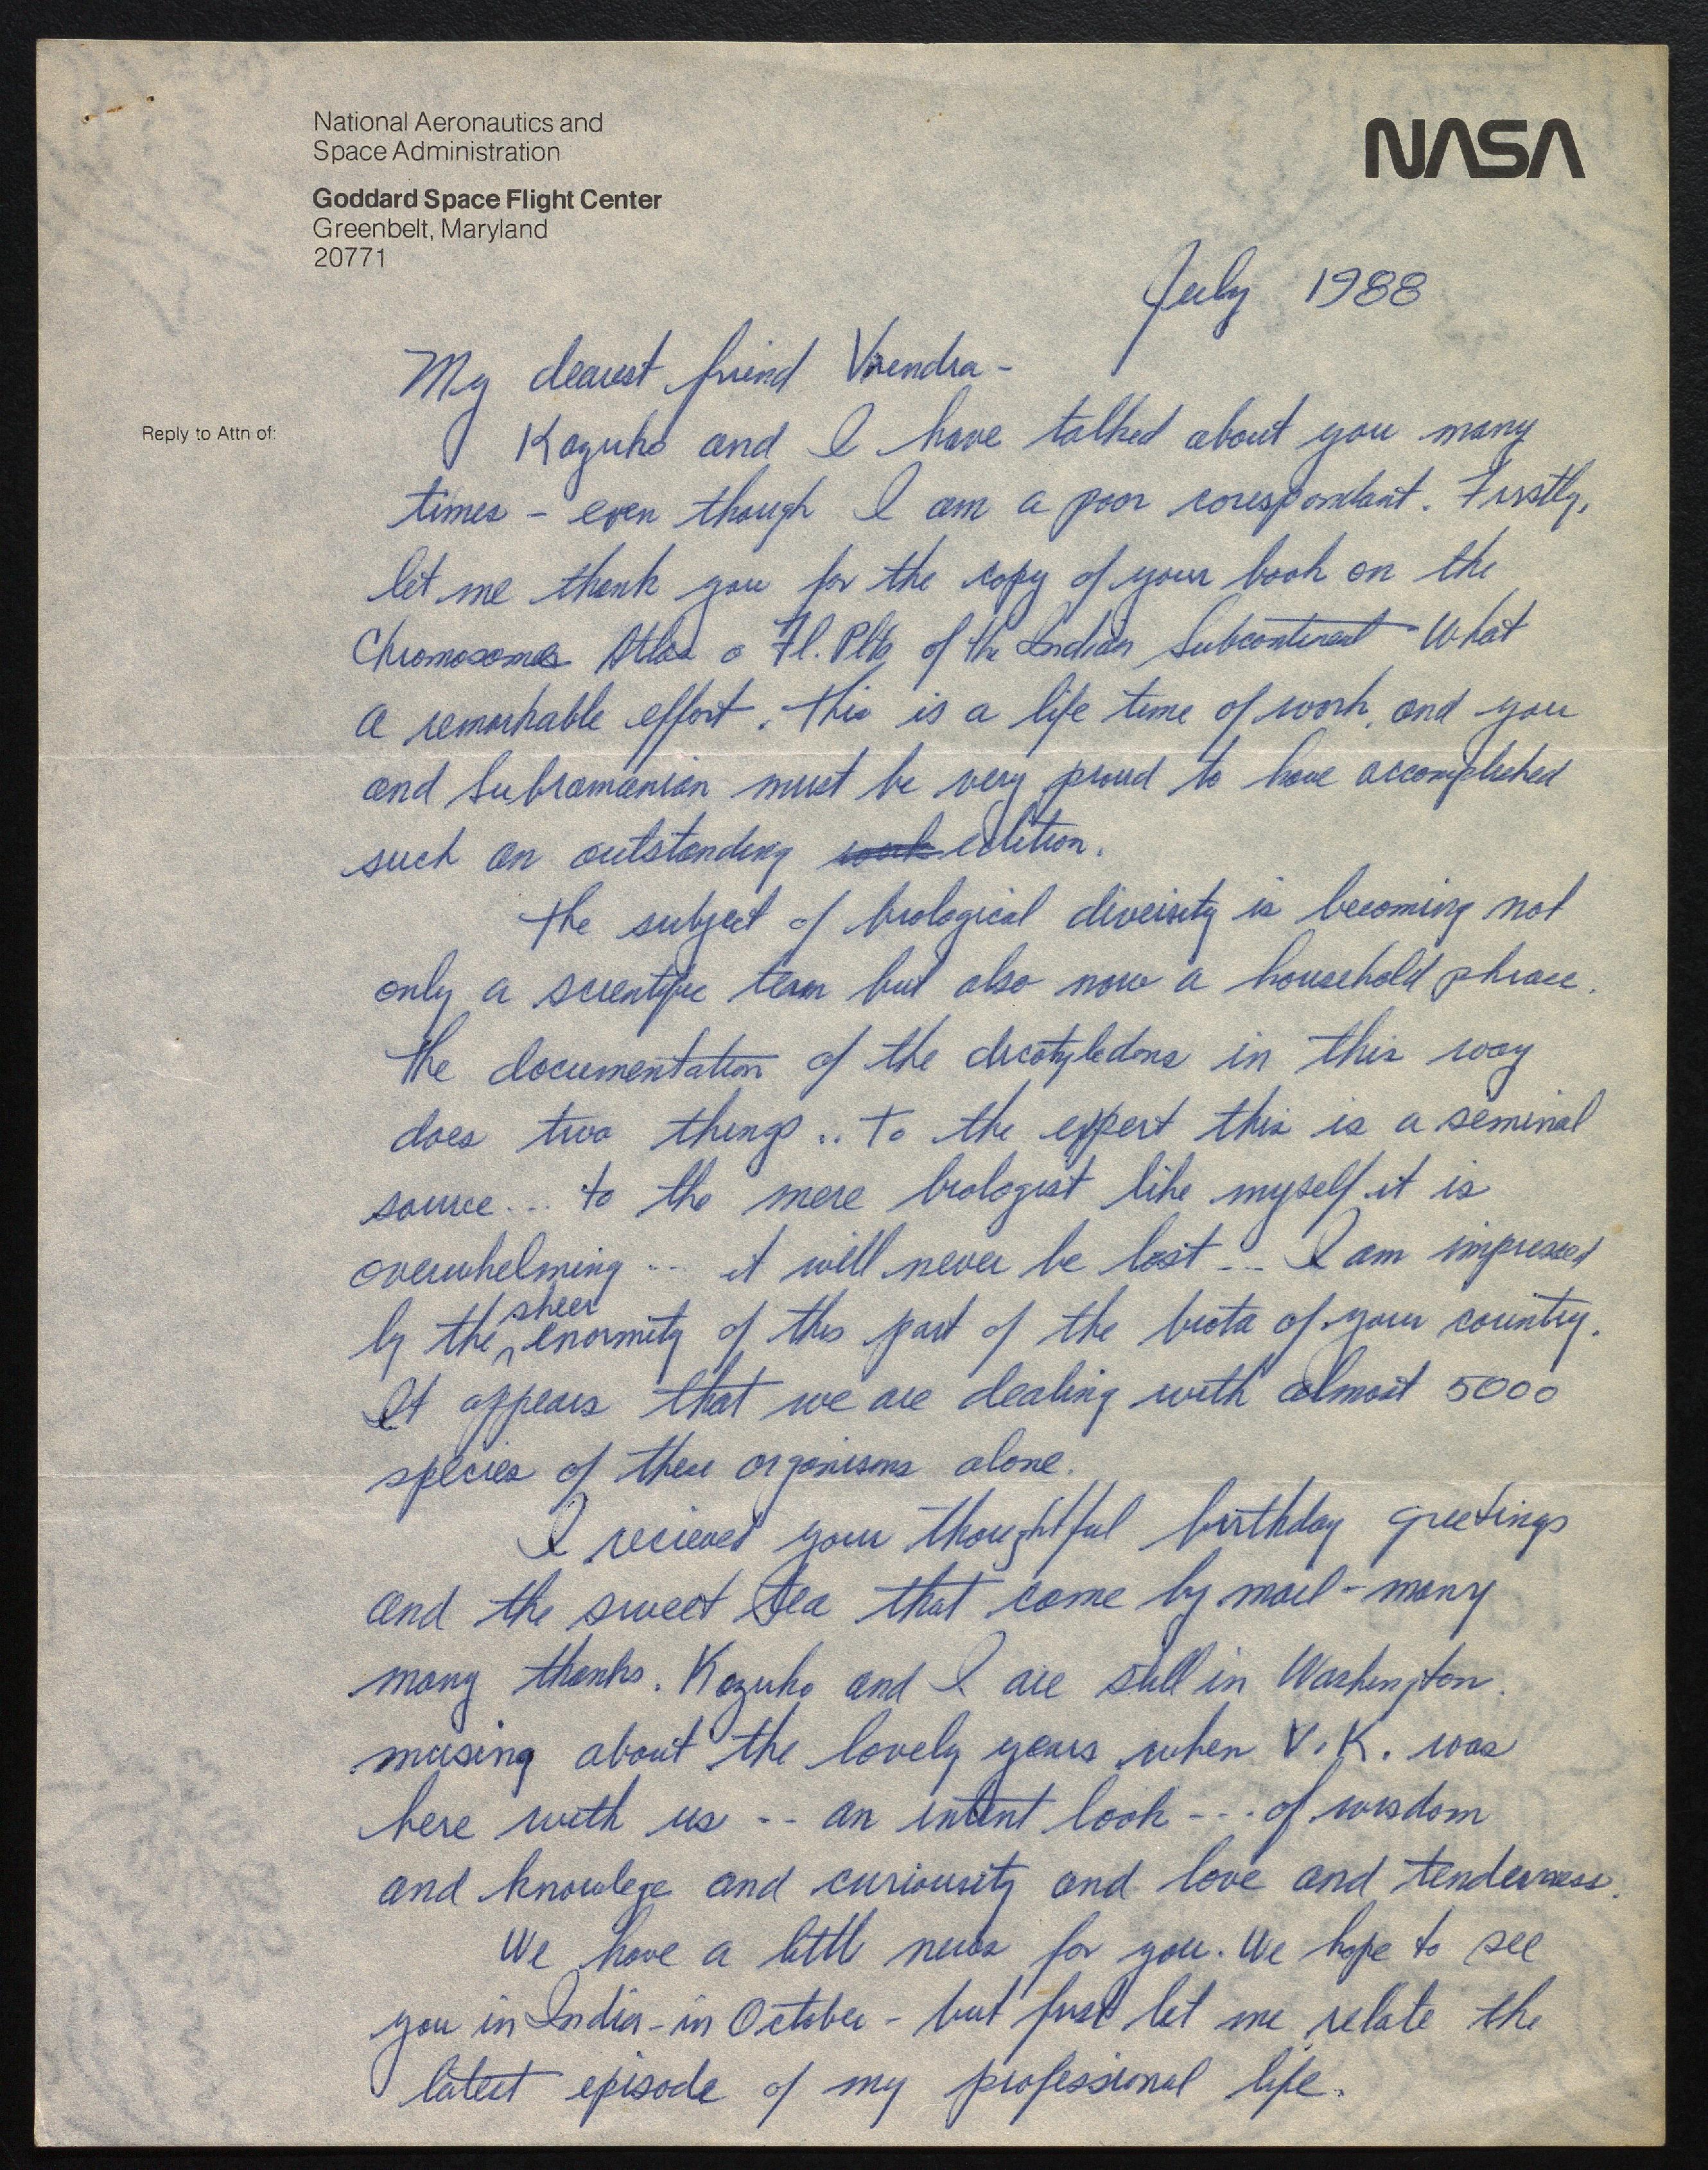 National Aeronautics and
Space Administration
Goddard Space Flight Center
Greenbelt, Maryland
20771
NASA
July 1988
My dearest friend Virendra -
Reply to Attn of:
Kazuko and I have talked about you many
times - even though I am a poor corespondant. Firstly,
let me thank you for the copy of your book on the
Chromosomes Atlas o Fl. Plts of the Indian Subcontinent What
a remarkable effort. This is a life time of work, and you
and Subramanian must be very proud to have accomplished
such an outstanding work edition.
The subject of biological diversity is becoming not
only a scientific term but also now a household phrase.
The documentation of the dicotyledons in this way
does two things .. To the expert this is a seminal
source ... to the mere biologist like myself it is
overwhelming ... it will never be lost ... I am impressed
by the sheer enormity of this part of the biota of your country.
It appears that we are dealing with almost 5000
species of these organisms alone.
I recieved your thoughtful birthday greetings
and the sweet tea that came by mail - many
many thanks. Kazuko and I are still in Washington.
musing about the lovely years when V.K. was
here with us -- an intent look --- of wisdom
and knowlege and curiousity and love and tenderness.
We have a littl news for you. We hope to see
you in India - in October - but first let me relate the
latest episode of my professional life.